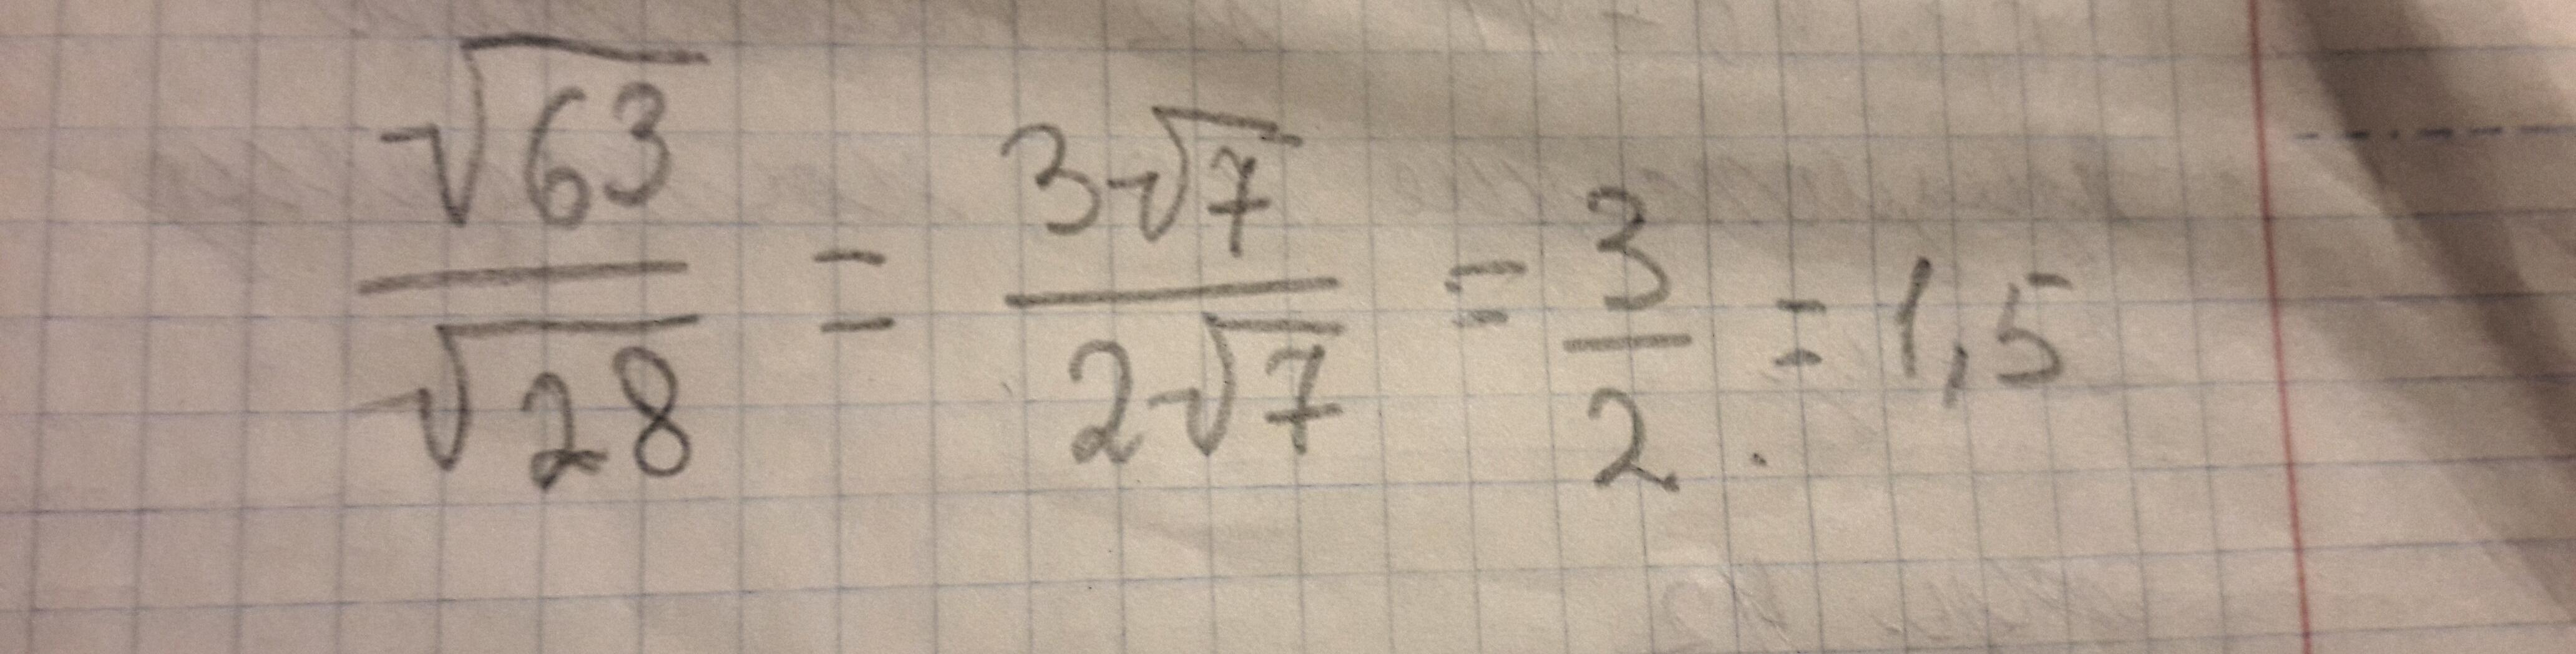 √63/√28 = 3√7/2√7 = 3/2 = 1,5